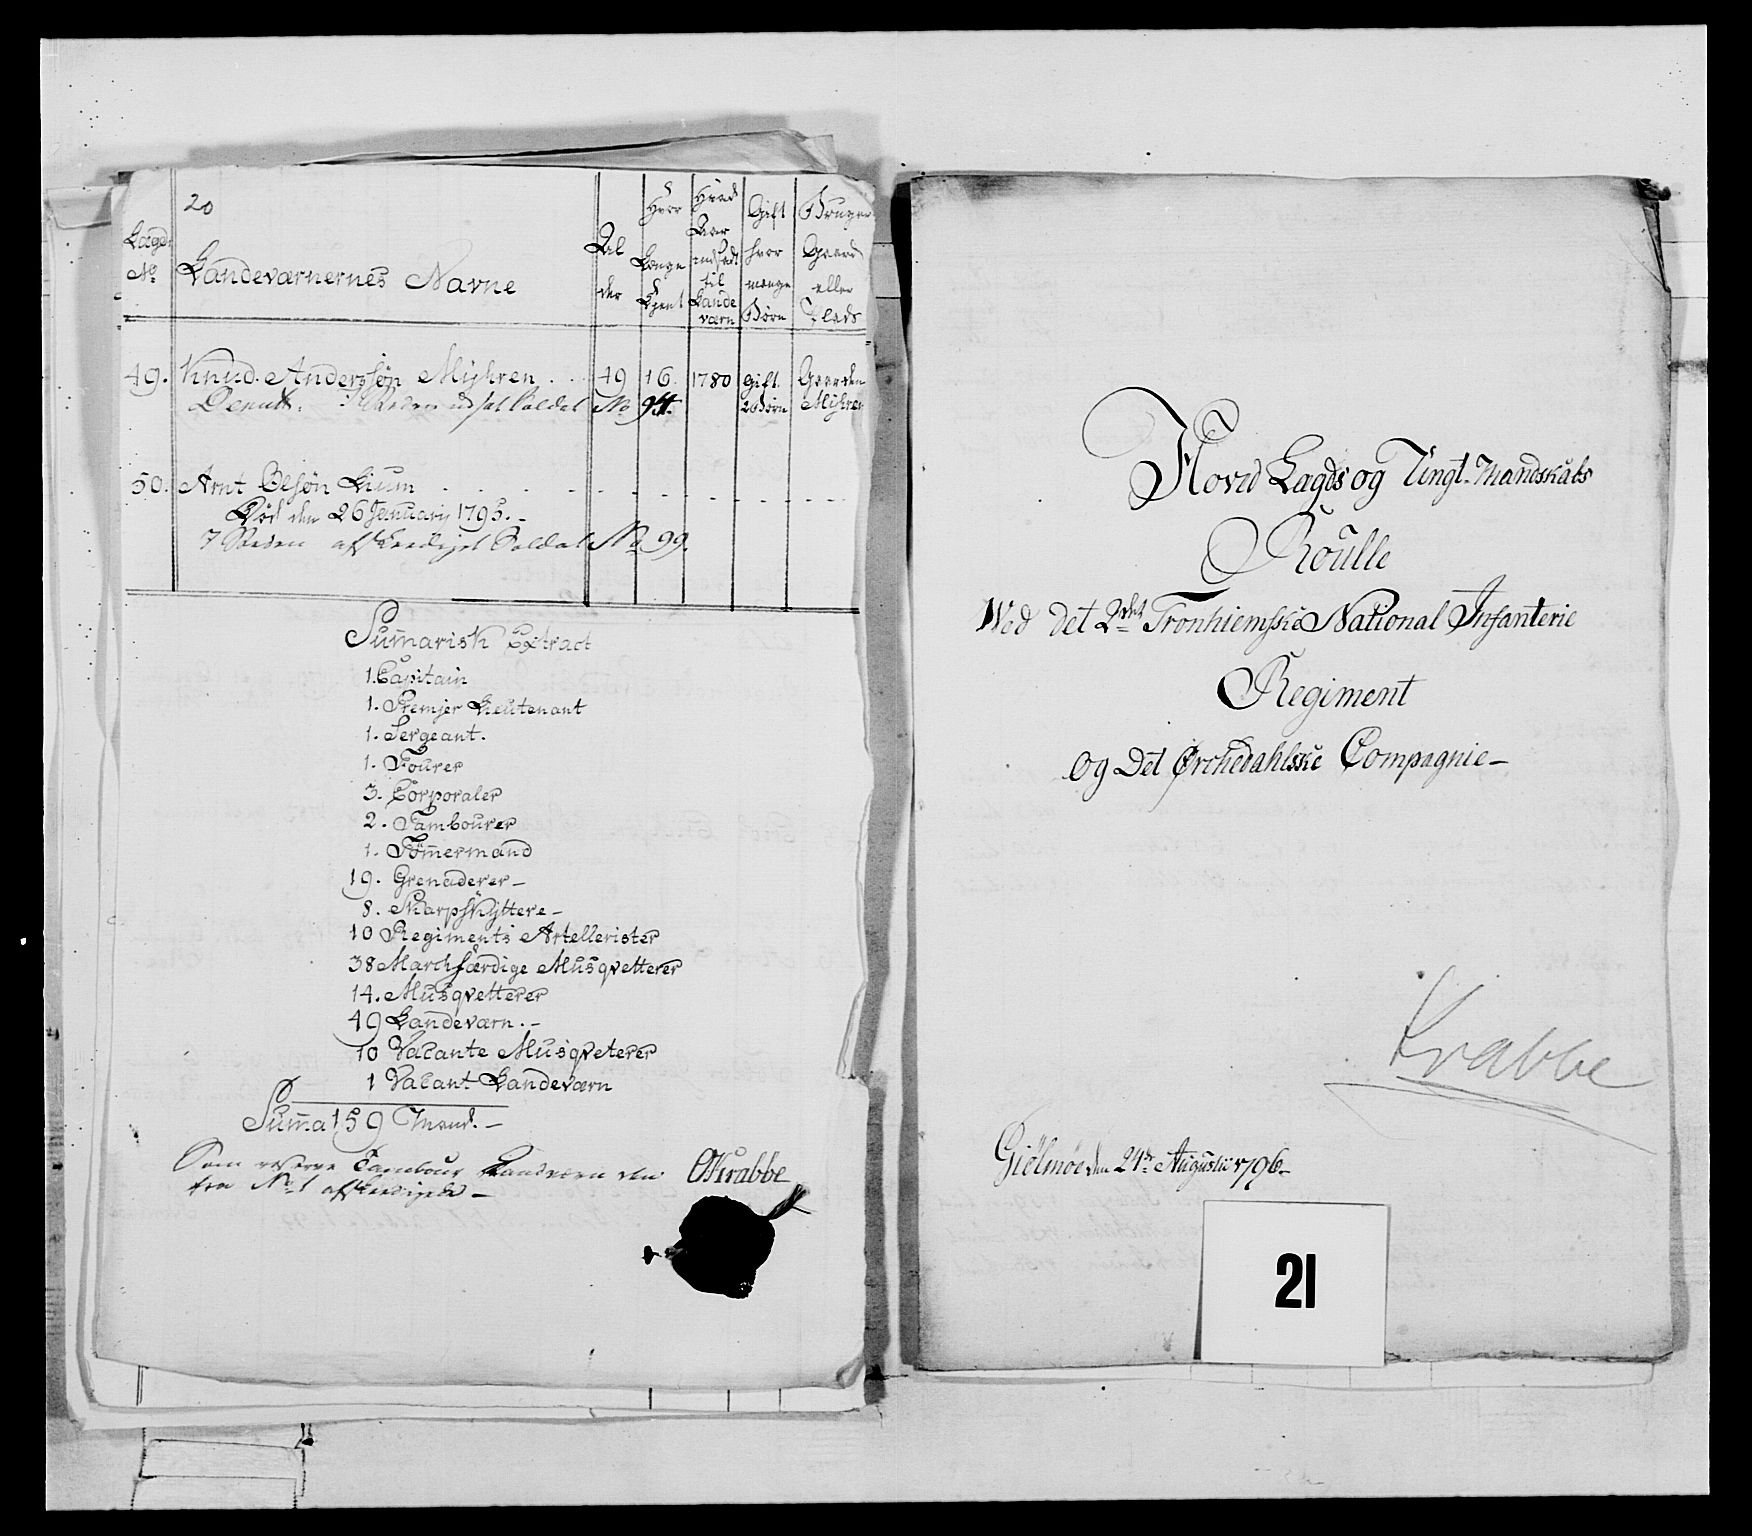 20
Lægds No
Landeværnernes Navne
Al der
Hvor Længe tient
Hvad Aar indsadt til Lande værn
Gift hvor mange Børn
Bruger Gaard eller Plads
49. Knud Anderssøn Mijhren . . 49 16. 1780 Gift 2 Børn Gaarden Mijhren
Soldat No 94.
50. Arnt Olsøn Lium . . . . . . . . . . .
Død den 26 Januarij 1795.
7 Steden afskeediget Soldat No 99.
Sumarisk Extract
1. Capitain
1. Premjer Lieutenant
1. Sergeant.
1. Fourer
3. Corporaler
2. Tambourer
1. Tømmermand
19. Grenaderer –
8. Skarpskyttere –
10 Regiments Artellerister
38 Marchfærdige Musqvetterer
14. Musqvetterer
49 Landeværn. –
10 Vacante Musqveterer
1 Vacant Landeværn
Summa 159 Mand. –
Som reserve Tambour Landværn den
fra No 1 afskeediget –
Krabbe
Hoved Lagds og Üngt. Mandskabs
Roulle
Wed det 2det Tronhiemske National Infanterie
Regiment
Og Det Ørchedahlske Compagnie –
Krabbe
Giølmøe den 24de Augustii 1796 –
21